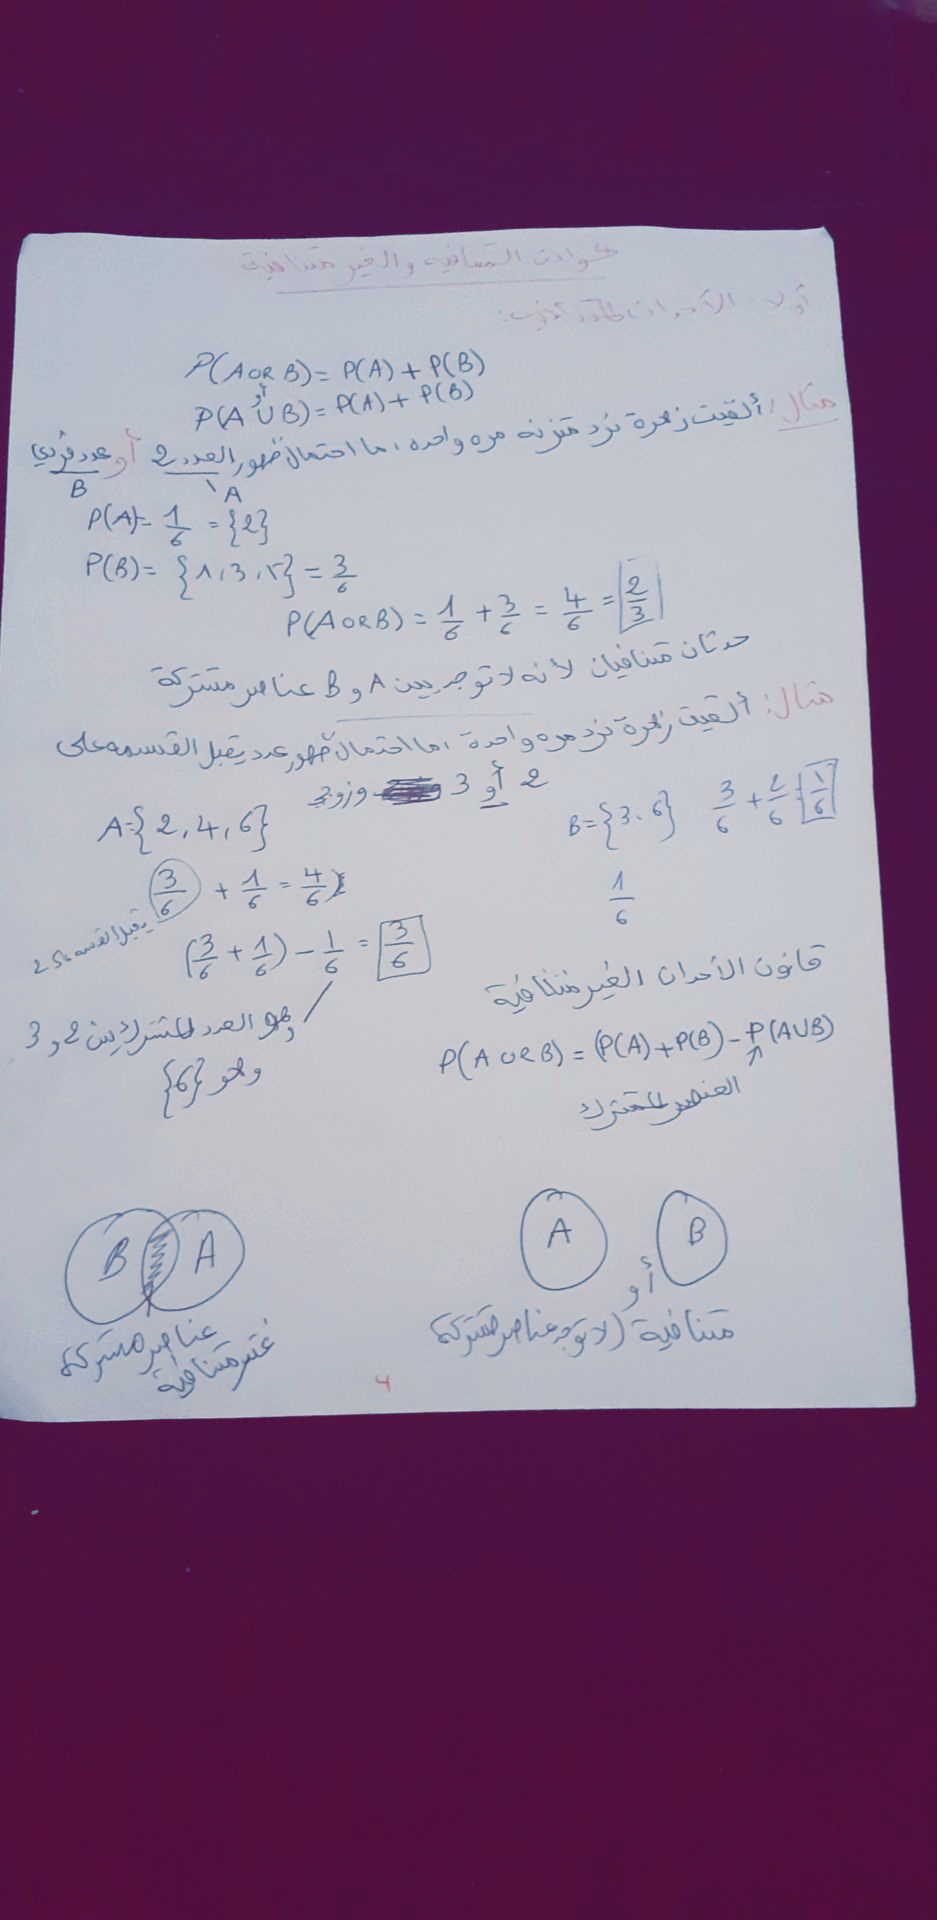 حوادث المتنافيه والغير متنافية
أولا: الأحداث المتنافية:
P(A OR B) = P(A) + P(B)
أو
P(A U B) = P(A) + P(B)
مثال: ألقيت زهرة نرد متزنه مره واحده، ما احتمال ظهور العدد 2 أو عدد فردي
A
B
P(A) = 1/6 = {2}
P(B) = {1, 3, 5} = 3/6
P(A OR B) = 1/6 + 3/6 = 4/6 = 2/3
حدثان متنافيان لأنه لا توجد بين A و B عناصر مشتركة
مثال: ألقيت زهرة نرد مره واحدة، ما احتمال ظهور عدد يقبل القسمه على
2 أو 3 وزوجي
A = {2, 4, 6}
B = {3, 6} 3/6 + 2/6 = 1/6
3/6 + 1/6 = 4/6
1/6
يقبل القسمه على 2
(3/6 + 1/6) - 1/6 = 3/6
وهو العدد المشترك بين 2 و 3
وهو {6}
قانون الأحداث الغير متنافية
P(A OR B) = (P(A) + P(B) - P(AUB)
العنصر المشترك
B A
عناصر مشتركة
غير متنافية
A أو B
متنافية (لا توجد عناصر مشتركة
4